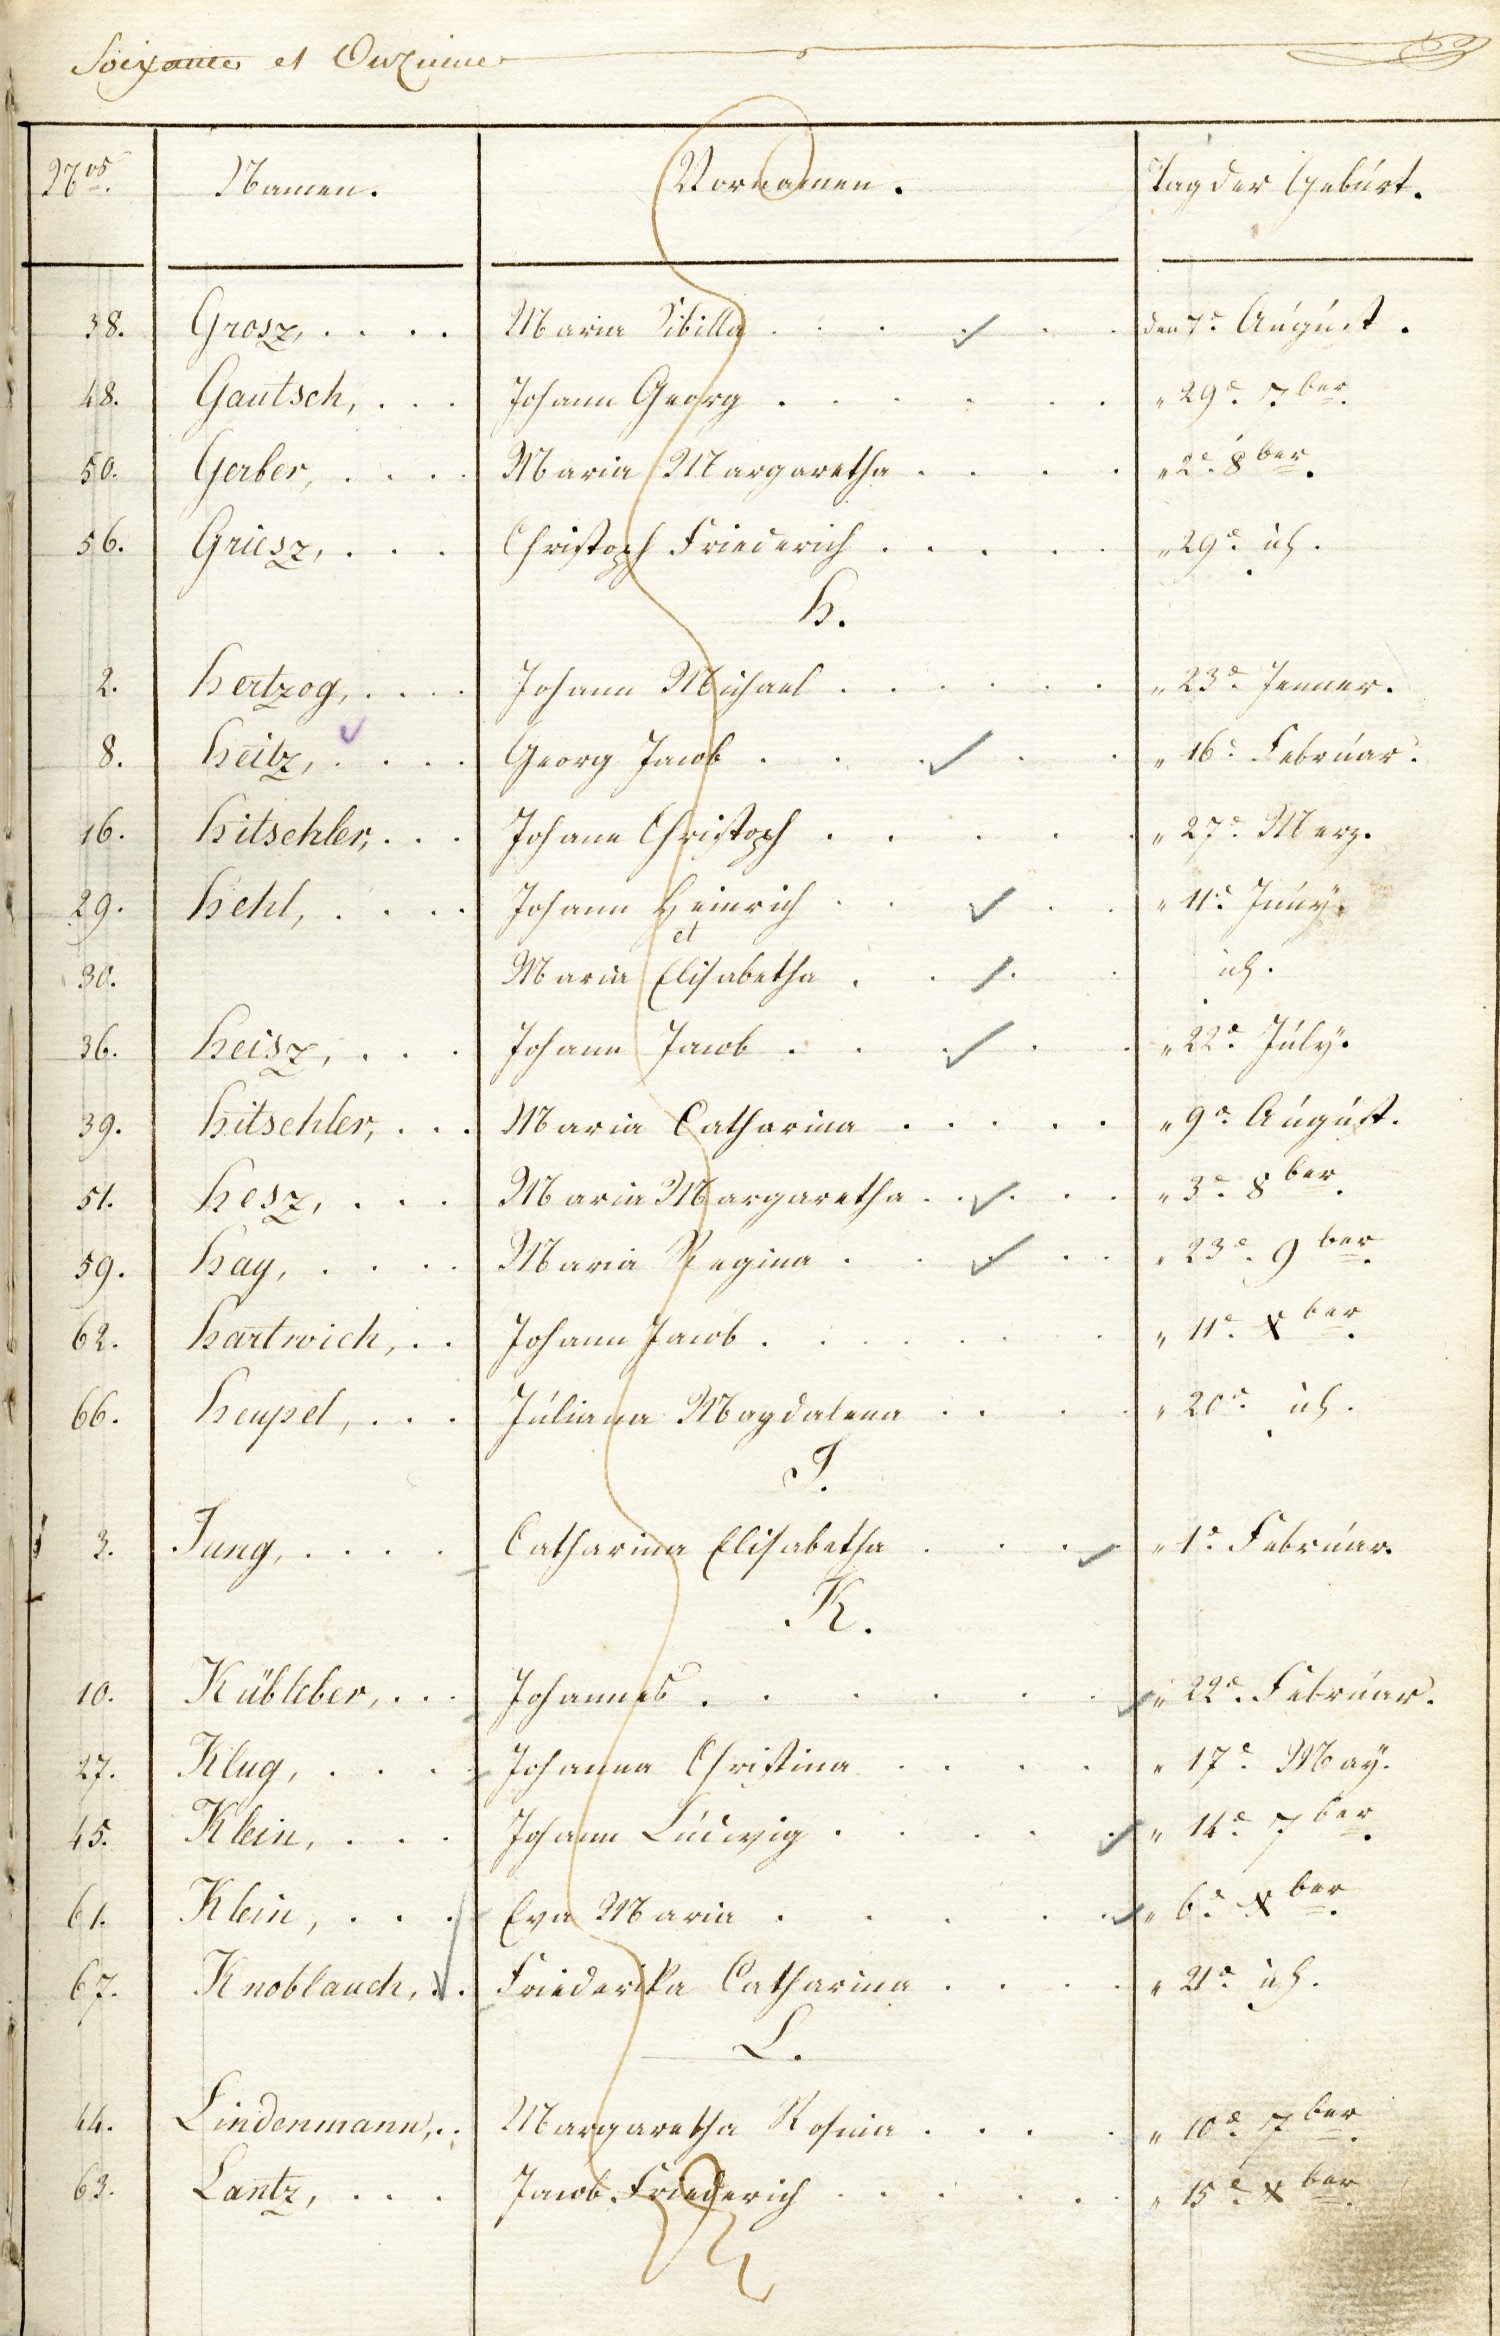 Soixante et Onzième
Nros. Namen. Vornamen. Tag der Gebúrt.
38. Grosz, . . . . Maria Sibilla . . . . . . den 7e. Aúgúst.
48. Gautsch, . . . Johann Georg . . . . . . " 29e. 7ber.
50. Gerber, . . . . Maria Margaretha . . . . " 2e. 8ber.
56. Griesz, . . . Christoph Friederich . . . . . " 29e. id.
H.
2. Hertzog, . . . . Johann Michael . . . . . . " 23e. Jenner.
8. Heitz, . . . . Georg Jacob . . . . . " 16e. Febrúar.
16. Hitschler, . . . Johann Christoph . . . . . " 27e. Merz.
29. Hehl, . . . . Johann Heinrich . . . . . " 11e. Júnÿ.
et
30. Maria Elisabetha . . . . id.
36. Heisz, . . . Johann Jacob . . . . . " 22e. Júlÿ.
39. Hitschler, . . . Maria Catharina . . . . . " 9e. Aúgúst.
51. Hesz, . . . Maria Margaretha . . . . . " 3e. 8ber.
59. Hay, . . . . Maria Regina . . . . . " 23e. 9ber.
62. Hartwich, . . Johann Jacob . . . . . . " 11e. Xber.
66. Heupel, . . . Júliana Magdalena . . . . " 20e. id.
J.
3. Jung, . . . . Catharina Elisabetha . . . . " 1e. Febrúar.
K.
10. Kübleber, . . . Johannes . . . . . . . " 22e. Febrúar.
27. Klug, . . . . Johanna Christina . . . . " 17e. Maÿ.
45. Klein, . . . Johann Lúdwig . . . . . " 14e. 7ber.
61. Klein, . . . Eva Maria . . . . . " 6e. Xber.
67. Knoblauch, . . Friederika Catharina . . . . " 21e. id.
L.
44. Lindenmann, . . Margaretha Rosina . . . . " 10e. 7ber.
63. Lantz, . . . Jacob Friederich . . . . . . " 15e. Xber.